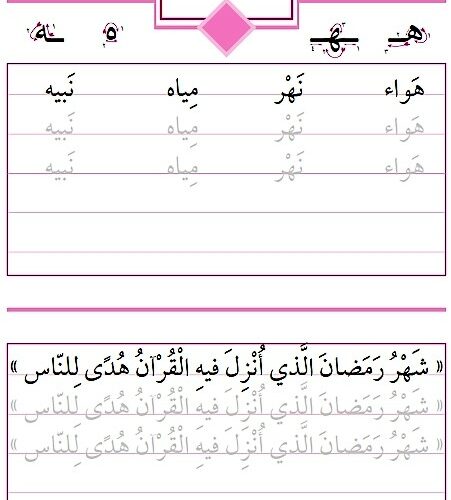 هـ ـهـ ه ـه
هَواء نَهْر مِياه نَبيه
هَواء نَهْر مِياه نَبيه
هَواء نَهْر مِياه نَبيه
« شَهْرُ رَمَضانَ الَّذي أُنْزِلَ فيهِ الْقُرْآنُ هُدًى لِلنّاس »
« شَهْرُ رَمَضانَ الَّذي أُنْزِلَ فيهِ الْقُرْآنُ هُدًى لِلنّاس »
« شَهْرُ رَمَضانَ الَّذي أُنْزِلَ فيهِ الْقُرْآنُ هُدًى لِلنّاس »